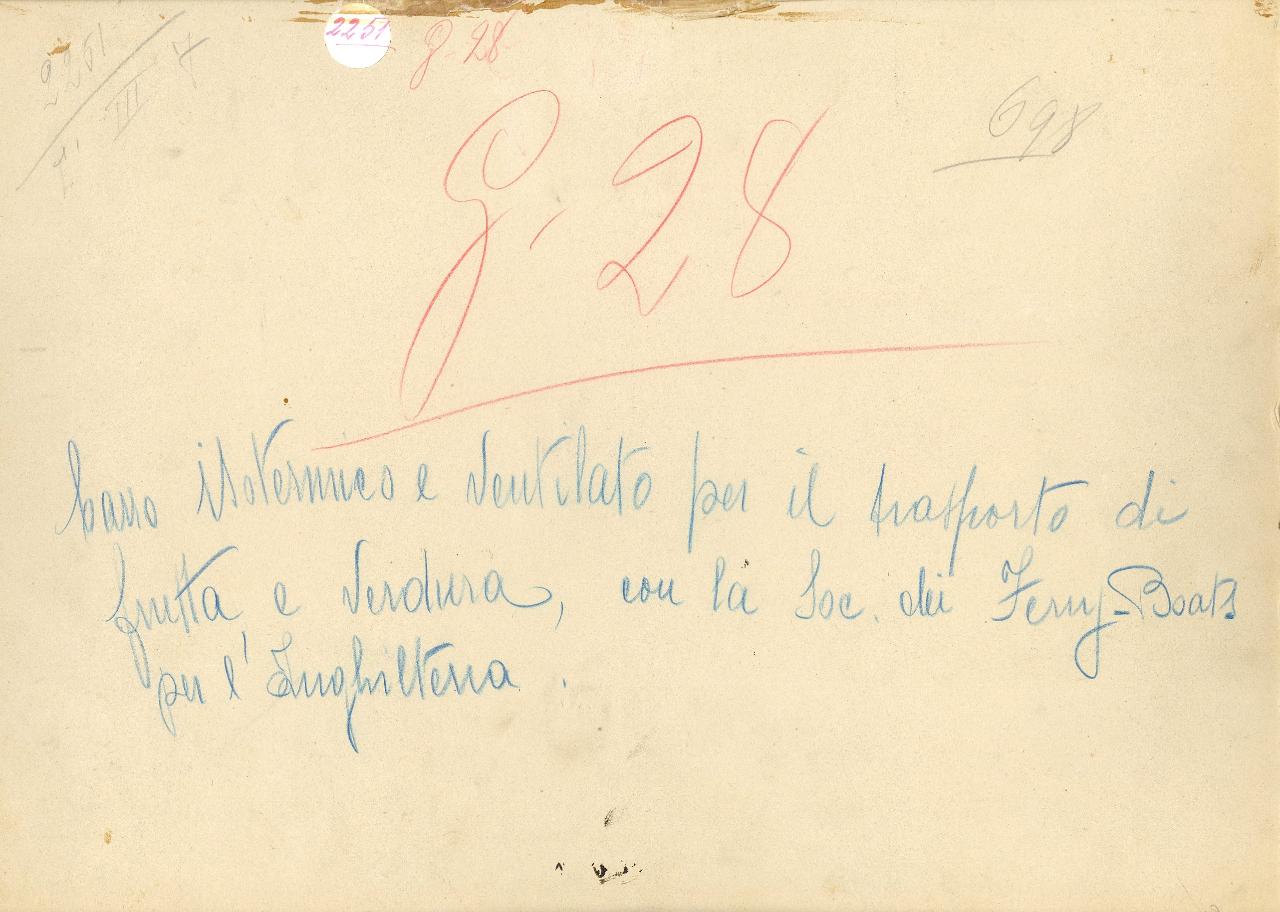 2251
2251
III 7
g. 28
698
G. 28
Carro isotermico e ventilato per il trasporto di
frutta e verdura, con la Soc. dei Ferry-Boats
per l'Inghilterra.